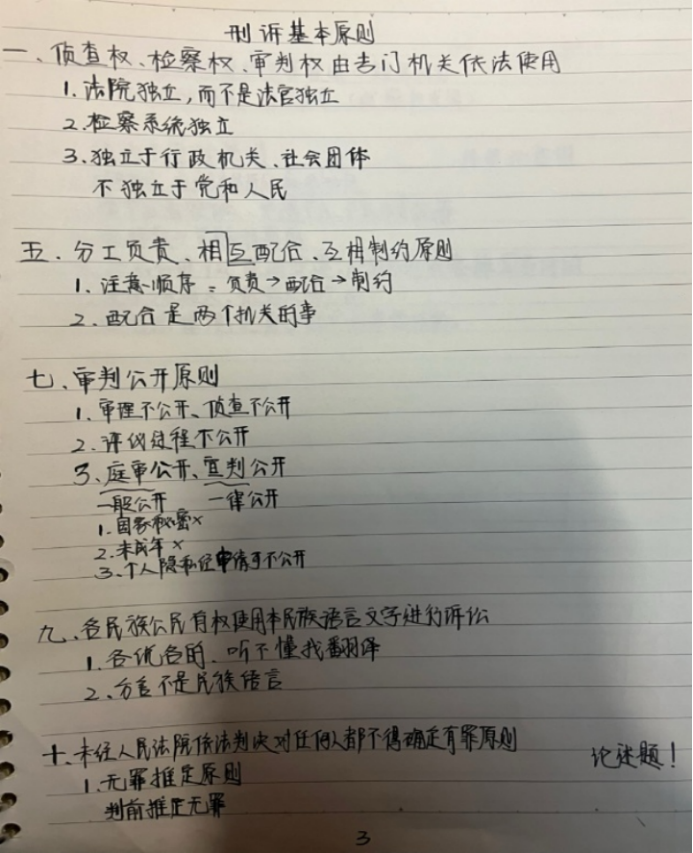 刑诉基本原则
一、侦查权、检察权、审判权由专门机关依法使用
1. 法院独立,而不是法官独立
2. 检察系统独立
3. 独立于行政机关、社会团体
不独立于党和人民
五、分工负责、相互配合、互相制约原则
1. 注意顺序:负责→配合→制约
2. 配合是两个机关的事
七、审判公开原则
1. 审理不公开、侦查不公开
2. 评议过程不公开
3. 庭审公开、宣判公开
一般公开 一律公开
1. 国家秘密×
2. 未成年×
3. 个人隐私经申请可不公开
九、各民族公民有权使用本民族语言文字进行诉讼
1. 各说各的,听不懂找翻译
2. 方言不是民族语言
十、未经人民法院依法判决对任何人都不得确定有罪原则 论述题!
1. 无罪推定原则
判前推定无罪
3